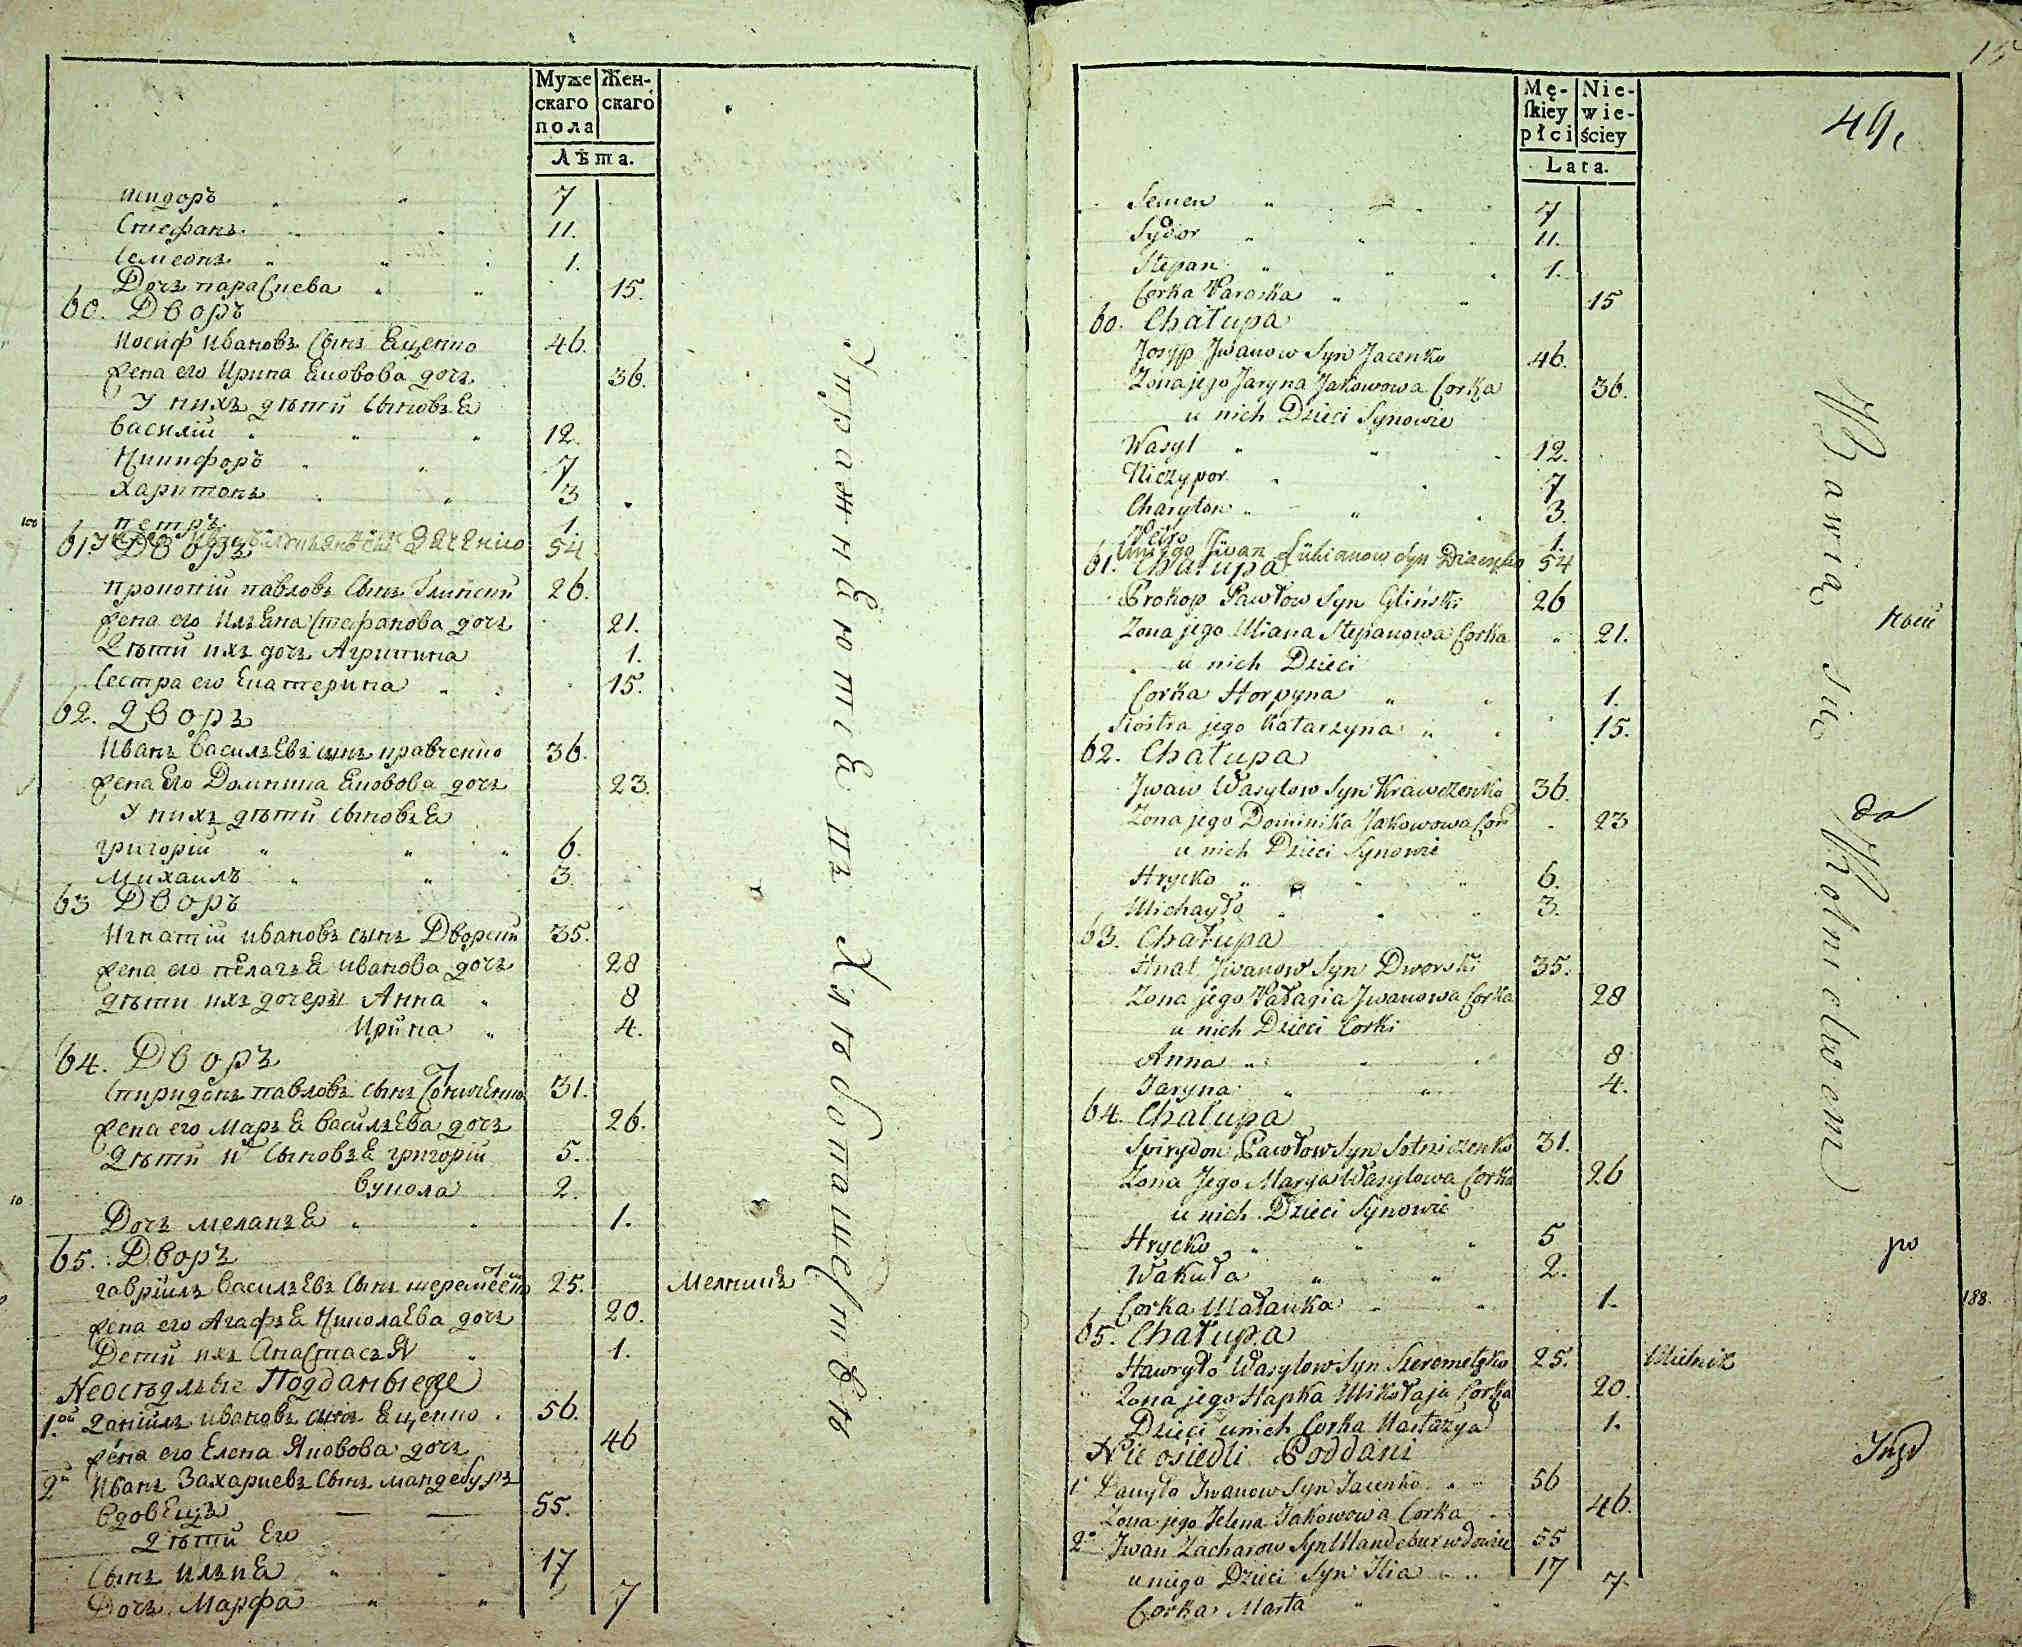 Муже
скаго
пола
Жен-
скаго
Лѣта.
Исидоръ 7
Стефанъ 11.
Семеонъ 1.
Дочь параскева 15.
60. Дворъ
Иосиф Ивановъ сынъ Яценко 46.
жена его Ирина Яковова дочь 36.
У нихъ дѣти сыновья
Василий 12.
Никифоръ 7
Харитонъ 3
петръ 1.
54
61 Дворъ
Прокопий павловъ сынъ Глинский 26.
жена его Ульяна Стефанова дочь 21.
Дѣти ихъ дочь Агрипина 1.
Сестра его Екатерина 15.
62. Дворъ
Иванъ Васильевъ сынъ кравченко 36.
жена Его Домника Яковова дочь 23.
У нихъ дѣти сыновья
григорий 6.
Михаилъ 3.
63 Дворъ
Игнатий ивановъ сынъ Дворский 35.
жена его пелагья иванова дочь 28
дѣти ихъ дочери Анна 8
Ирина 4.
64. Дворъ
Спиридонъ павловъ сынъ Сотниченко 31.
жена его Марья васильева дочь 26.
Дѣти и сыновья григорий 5.
Вукола 2.
Дочь меланья 1.
65. Дворъ
гавриилъ васильевъ сынъ 25. Мелникъ
жена его Агафья Николаева дочь 20.
Дети ихъ Анастасья 1.
Неосѣдлые Подданые же
1.ой Даниилъ ивановъ сынъ Яценко 56.
жена его Елена Яковова дочь 46
2й Иванъ Захариевъ сынъ мандебуръ
вдовецъ 55.
Дѣти Его
Сынъ илья 17
Дочь Марфа 7
Упражняются въ Хлѣбопашествѣ
15
Mę-
ſkiey
płci
Nie-
wie-
ściey
Lata.
49.
Semen 7
Sydor 11.
Stepan 1.
Corka Paraska 15
60. Chałupa
Josyp Jwanow Syn Jacenko 46.
Zona jego Jaryna Jakowowa Corka 36.
u nich Dzieci Synowie
Wasyl 12.
Niczypor 7
Charyton 3.
Petro 1.
u niego Jwan Syn 54
61. Chałupa
Prokop Pawłow Syn Gliński 26
Zona jego Uliana Stepanowa Corka 21.
u nich Dzieci
Corka Horpyna 1.
Siostra jego Katarzyna 15.
62. Chałupa
Jwan Wasylow Syn Krawczenko 36.
Zona jego Dominika Jakowowa Cor 23
u nich Dzieci Synowie
Hrycko 6.
Michayło 3.
63. Chałupa
Hnat Jwanow Syn Dworski 35.
Zona jego Pałagia Jwanowa Corka 28
u nich Dzieci Corki
Anna 8
Jaryna 4.
64. Chałupa
Spirydon Pawłow Syn Sotniczenko 31.
Zona Jego Marya Wasylowa Corka 26
u nich Dzieci Synowie
Hrycko 5
Wakuła 2.
Corka Małanka 1.
65. Chałupa
Hawryło Wasylow Syn Szeremetko 25. Mielnik
Zona jego Hapka Mikołaja Corka 20.
Dzieci u nich Corka Nastazya 1.
Nie osiedli Poddani
1o Danyło Jwanow Syn Jacenko 56
Zona jego Jelena Jakowowa Corka 46.
2o Jwan Zacharow Syn Mandebur wdowiec 55
u niego Dzieci Syn Ilia 17
Corka Marta 7.
Bawią się Rolnictwem
да
ро
188.